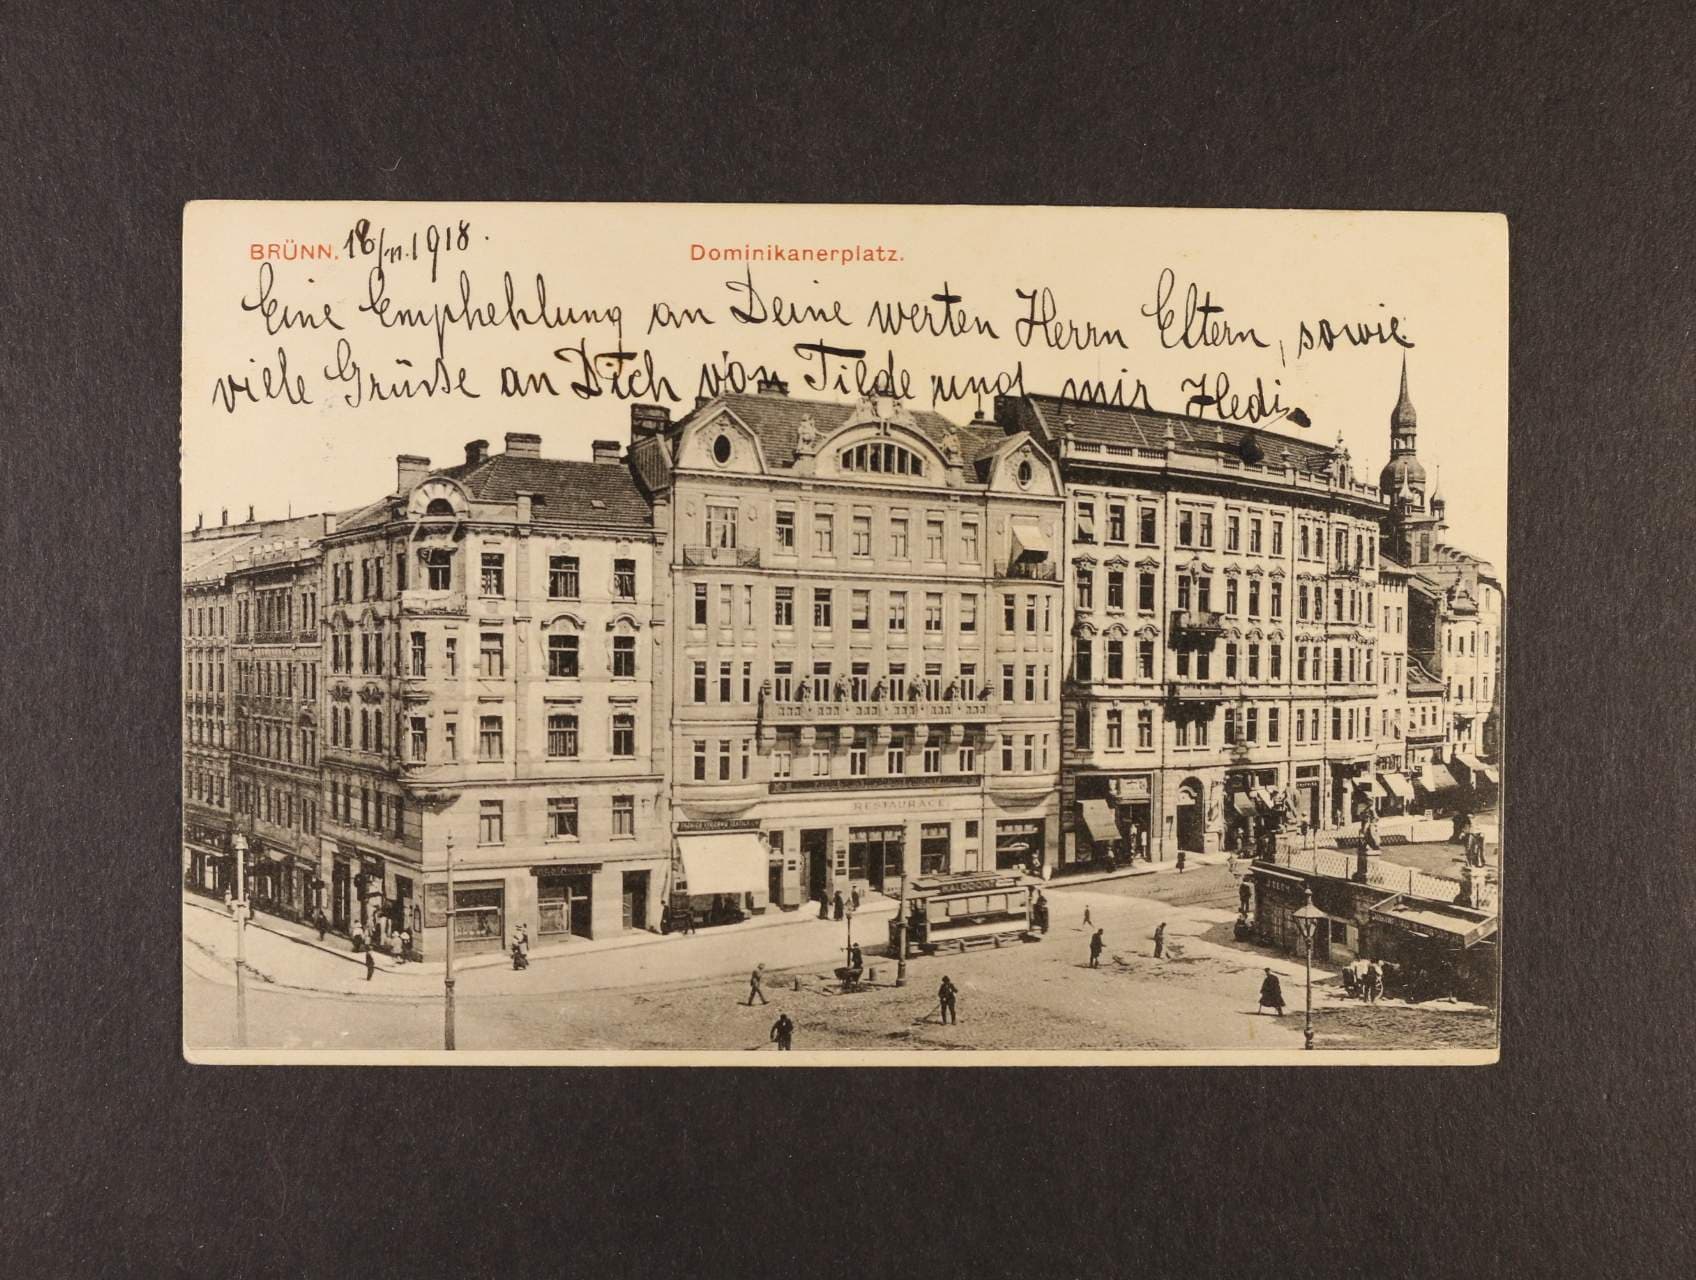 BRÜNN. 18/VI. 1918.
Dominikanerplatz.
Eine Empfehlung an Deine werten Herrn Eltern, sowie
viele Grüße an Dich von Tilde und mir Hedi.
RESTAURACE
KALODONT